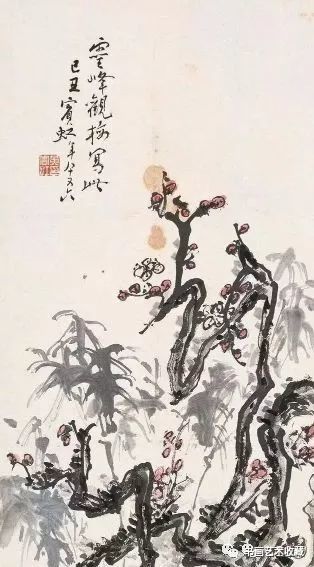 靈峰觀梅寫此
己丑賓虹年八十又六
书画艺术收藏